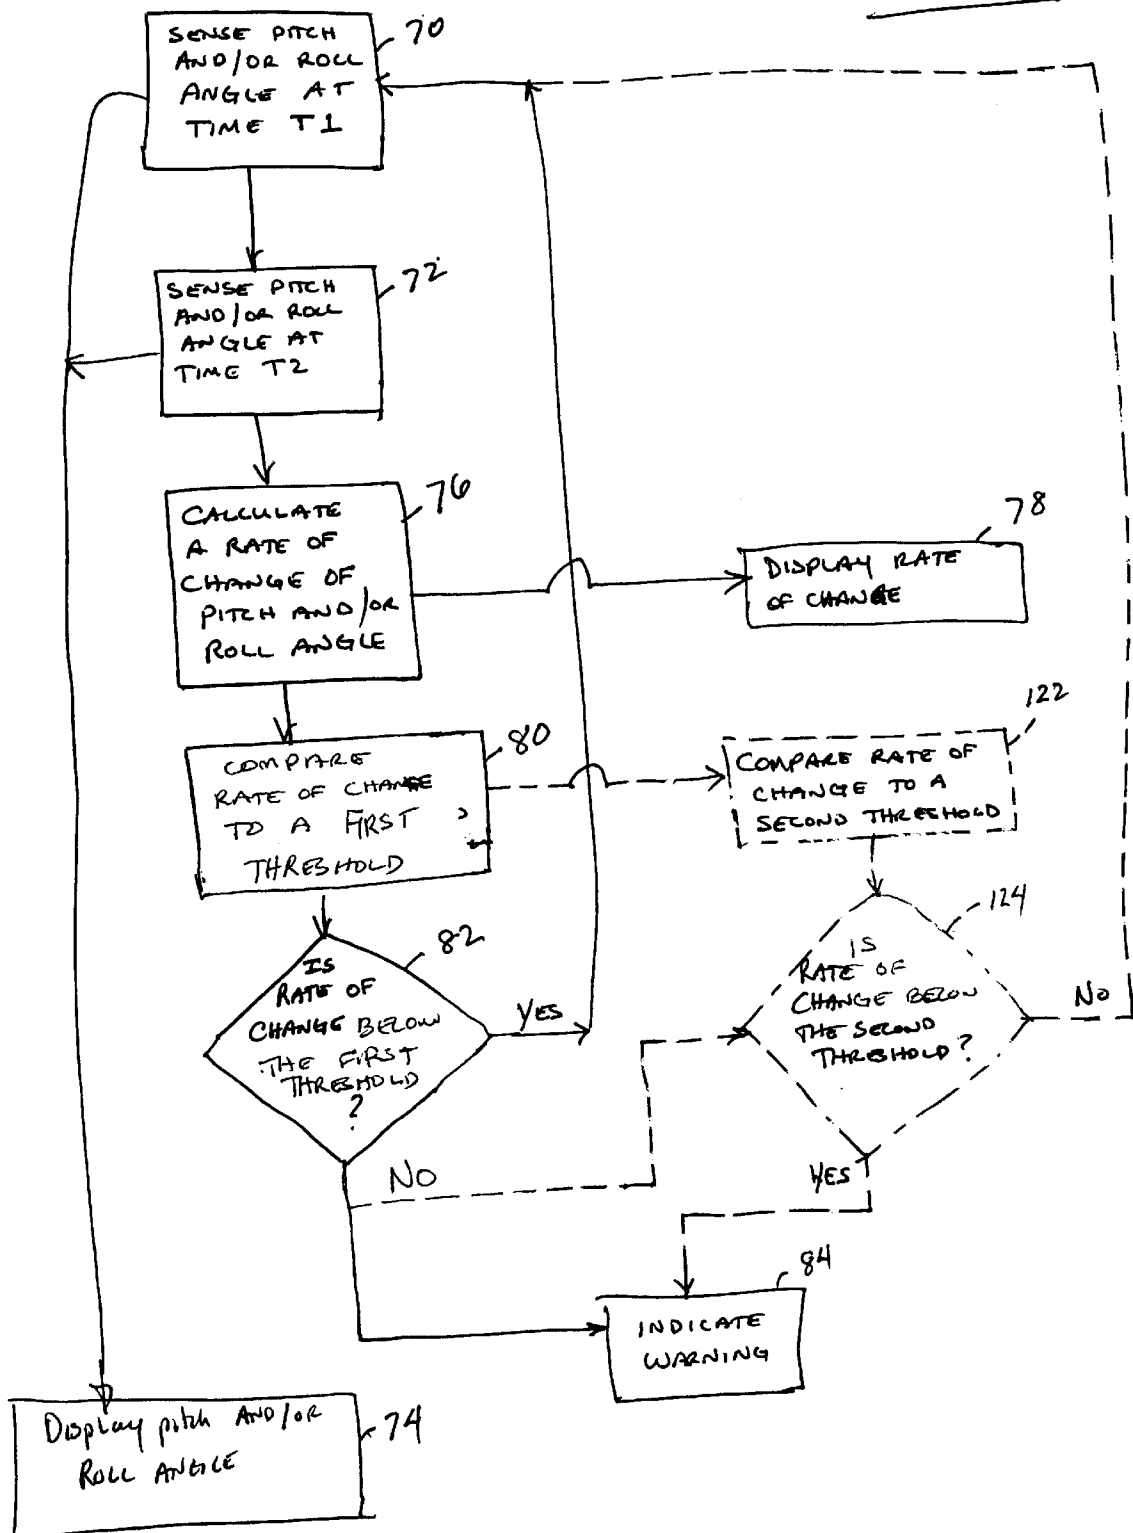 SENSE PITCH
AND/OR ROLL
ANGLE AT
TIME T1
70
SENSE PITCH
AND/OR ROLL
ANGLE AT
TIME T2
72
CALCULATE
A RATE OF
CHANGE OF
PITCH AND/OR
ROLL ANGLE
76
DISPLAY RATE
OF CHANGE
78
COMPARE
RATE OF CHANGE
TO A FIRST
THRESHOLD
80
COMPARE RATE OF
CHANGE TO A
SECOND THRESHOLD
122
IS
RATE OF
CHANGE BELOW
THE FIRST
THRESHOLD
?
82
YES
NO
IS
RATE OF
CHANGE BELOW
THE SECOND
THRESHOLD?
124
NO
YES
INDICATE
WARNING
84
Display pitch AND/OR
ROLL ANGLE
74